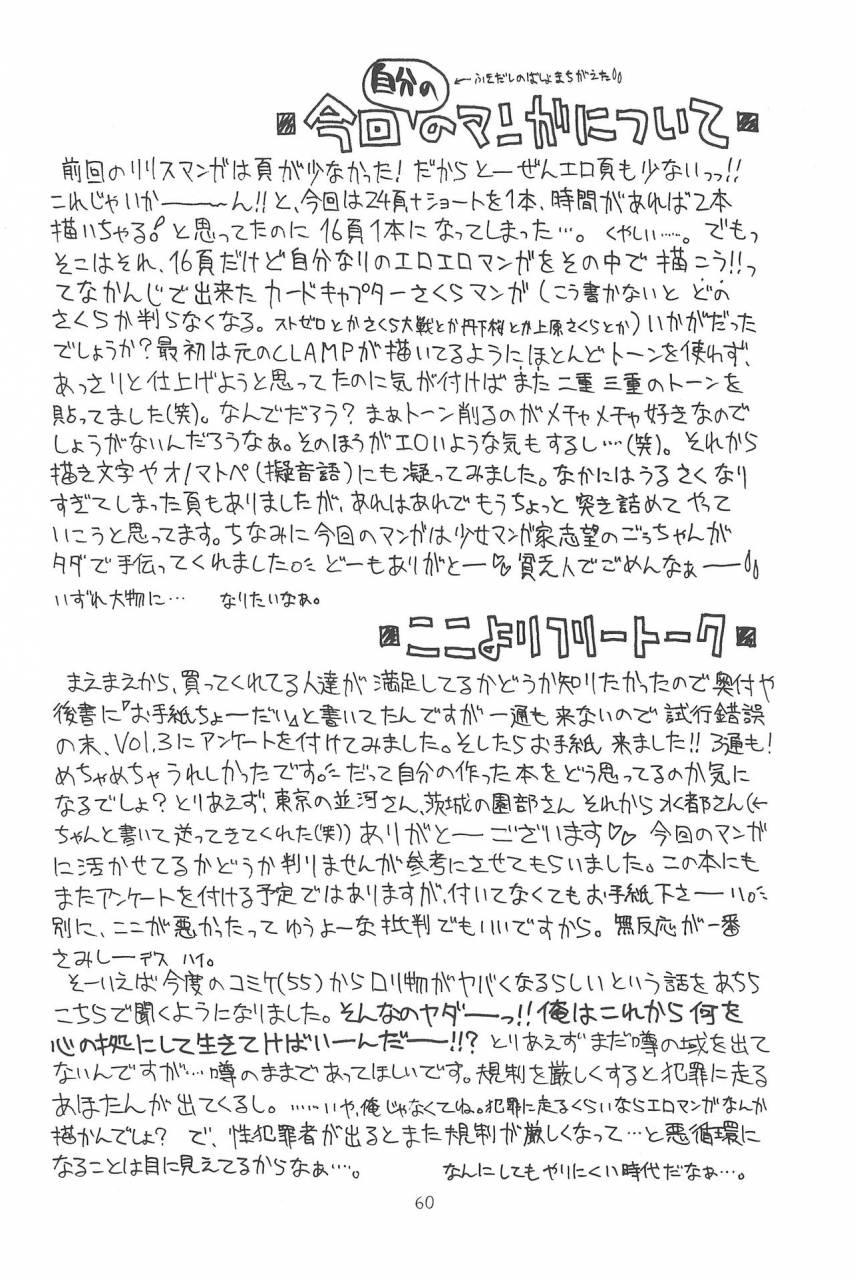 自分の ←ふきだしのばしょまちがえた
今回のマンガについて
前回のリリスマンガは頁が少なかった！だからとーぜんエロ頁も少ないっっ!!
これじゃいかー〜〜ん!!と、今回は24頁+ショートを1本、時間があれば2本
描いちゃる！と思ってたのに16頁1本になってしまった…。くやしい……。でもっ
そこはそれ、16頁だけど自分なりのエロエロマンガをその中で描こう!!っ
てなかんじで出来たカードキャプターさくらマンガ(こう書かないとどの
さくらか判らなくなる。ストゼロとかさくら大戦とか丹下桜とか上原さくらとか)いかがだった
でしょうか？最初は元のCLAMPが描いてるようにほとんどトーンを使わず、
あっさりと仕上げようと思ってたのに気が付けばまた二重三重のトーンを
貼ってました(笑)。なんでだろう？まぁトーン削るのがメチャメチャ好きなので
しょうがないんだろうなぁ。そのほうがエロいような気もするし…(笑)。それから
描き文字やオノマトペ(擬音語)にも凝ってみました。なかにはうるさくなり
すぎてしまった頁もありましたが、あれはあれでもうちょっと突き詰めてやって
いこうと思ってます。ちなみに今回のマンガは少女マンガ家志望のごぅちゃんが
タダで手伝ってくれました。どーもありがとー♡貧乏人でごめんなぁー
いずれ大物に… なりたいなぁ。
ここよりフリートーク
まえまえから、買ってくれてる人達が満足してるかどうか知りたかったので奥付や
後書に『お手紙ちょーだい』と書いてたんですが一通も来ないので試行錯誤
の末、Vol.3にアンケートを付けてみました。そしたらお手紙来ました!!3通も！
めちゃめちゃうれしかったです。だって自分の作った本をどう思ってるのか気に
なるでしょ？とりあえず、東京の並河さん、茨城の園部さんそれから水都さん(←
ちゃんと書いて送ってきてくれた(笑))ありがとーございます♡♡ 今回のマンガ
に活かせてるかどうか判りませんが参考にさせてもらいました。この本にも
またアンケートを付ける予定ではありますが、付いてなくてもお手紙下さーい。
別に、ここが悪かったってゆうよーな批判でもいいですから。無反応が一番
さみしーデス ハイ。
そーいえば今度のコミケ(55)からロリ物がヤバくなるらしいという話をあちら
こちらで聞くようになりました。そんなのヤダーっ!!俺はこれから何を
心の拠にして生きてけばいーんだー!!？とりあえずまだ噂の域を出て
ないんですが…噂のままであってほしいです。規制を厳しくすると犯罪に走る
あほたんが出てくるし。……いや、俺じゃなくてね。犯罪に走るくらいならエロマンガなんか
描かんでしょ？ で、性犯罪者が出るとまた規制が厳しくなって…と悪循環に
なることは目に見えてるからなぁ…。 なんにしてもやりにくい時代だなぁ…。
60